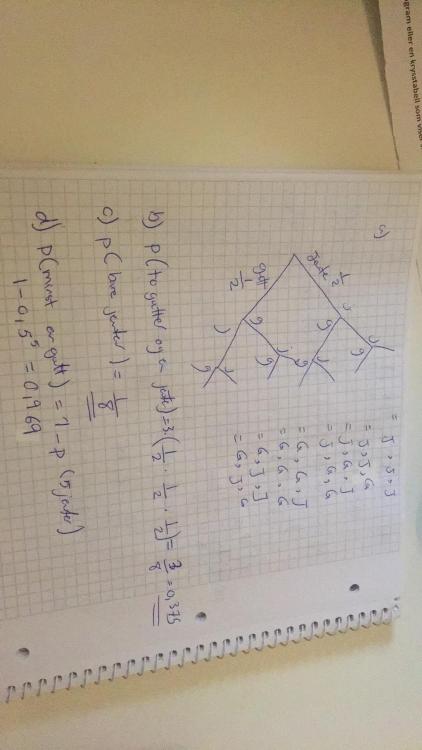 ogram eller en krysstabell som viser
a)
jente 1/2
gutt 1/2
j
g
j
g
j
g
j
g
j
g
j
g
= J, J, J
= J, J, G
= J, G, J
= J, G, G
= G, G, J
= G, G, G
= G, J, J
= G, J, G
b) P(to gutter og en jente) = 3·(1/2 · 1/2 · 1/2) = 3/8 = 0,375
c) P(bare jenter) = 1/8
d) P(minst en gutt) = 1 - P(5 jenter)
1 - 0,5⁵ = 0,969